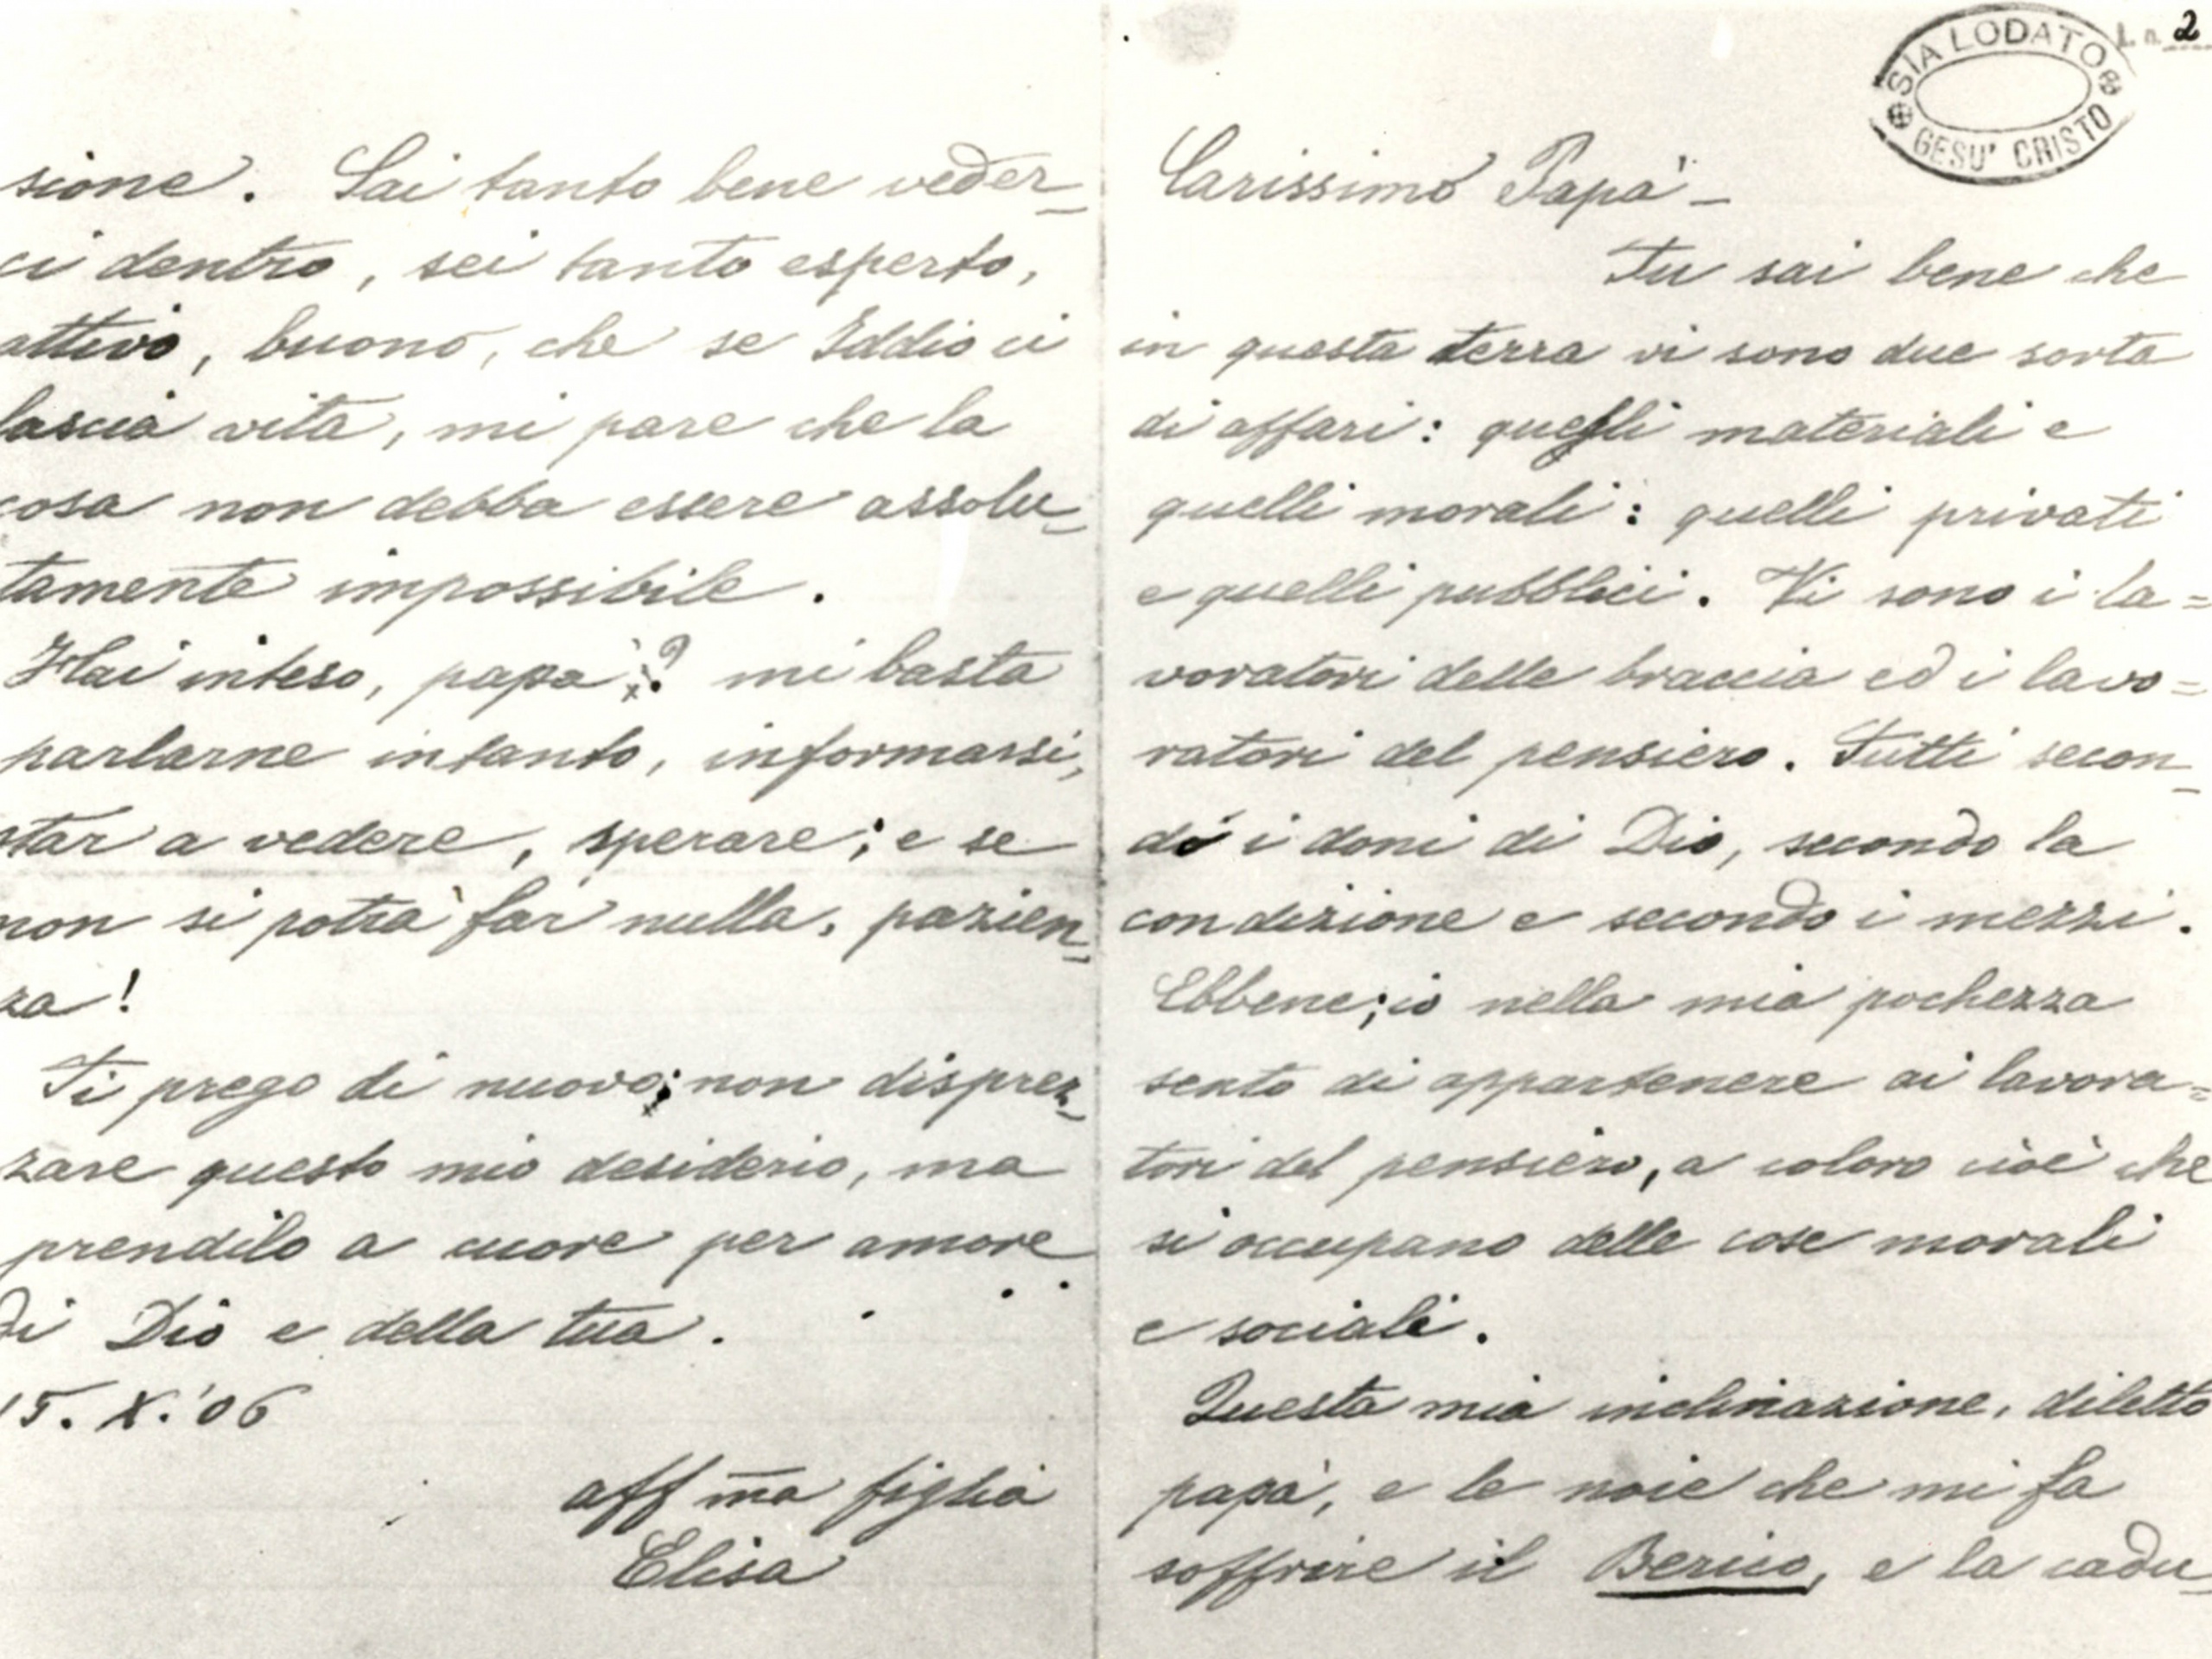 sione. Sai tanto bene veder=
ci dentro, sei tanto esperto,
attivo, buono, che se Iddio ci
lascia vita, mi pare che la
cosa non debba essere assolu=
tamente impossibile.
Hai inteso, papà? mi basta
parlarne intanto, informarsi,
star a vedere, sperare; e se
non si potrà far nulla, pazien=
za!
Ti prego di nuovo; non disprez=
zare questo mio desiderio, ma
prendilo a cuore per amore
di Dio e della tua.
15. X. '06
aff ma figlia
Elisa
L. n. 2
SIA LODATO
GESU' CRISTO
Carissimo Papà -
Tu sai bene che
in questa terra vi sono due sorta
di affari: quelli materiali e
quelli morali: quelli privati
e quelli pubblici. Vi sono i la=
voratori delle braccia ed i lavo=
ratori del pensiero. Tutti secon=
do i doni di Dio, secondo la
condizione e secondo i mezzi.
Ebbene; io nella mia pochezza
sento di appartenere ai lavora=
tori del pensiero, a coloro cioè che
si occupano delle cose morali
e sociali.
Questa mia inclinazione, diletto
papà, e le noie che mi fa
soffrire il Berico, e la cadu=